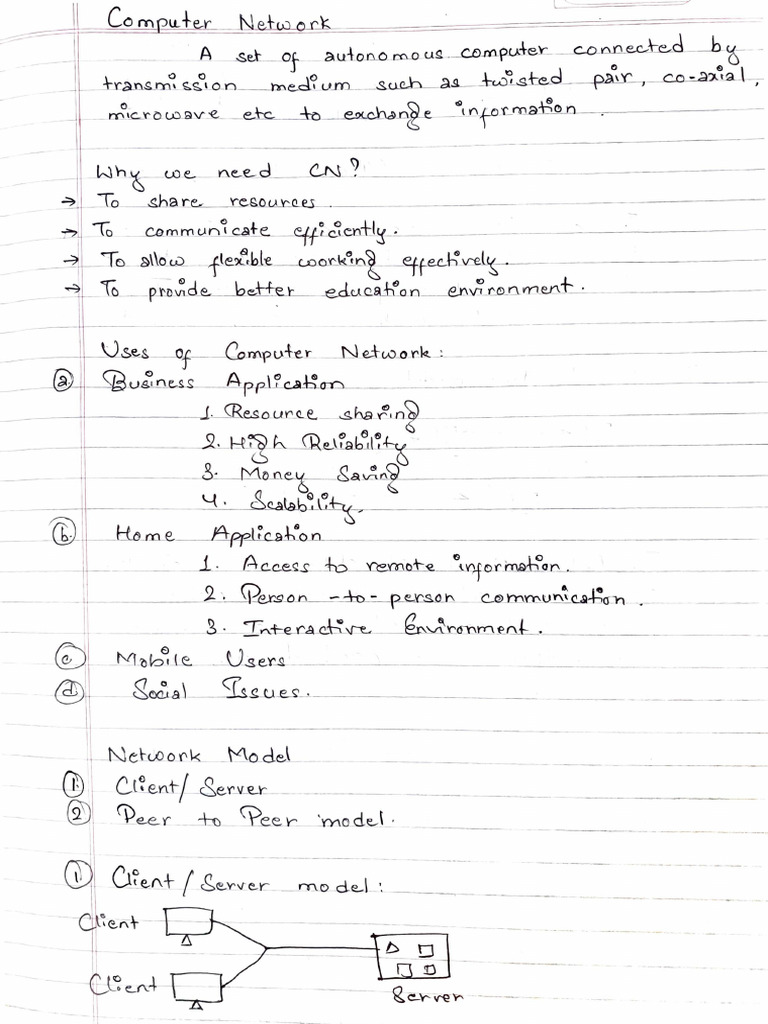 Computer Network
A set of autonomous computer connected by
transmission medium such as twisted pair, co-axial,
microwave etc to exchange information.
Why we need CN?
→ To share resources.
→ To communicate efficiently.
→ To allow flexible working effectively.
→ To provide better education environment.
Uses of Computer Network:
a. Business Application
1. Resource sharing
2. High Reliability
3. Money Saving
4. Scalability.
b. Home Application
1. Access to remote information.
2. Person -to- person communication.
3. Interactive Environment.
c. Mobile Users
d. Social Issues.
Network Model
1. Client/Server
2. Peer to Peer model.
1) Client/Server model:
Client
Client
Server